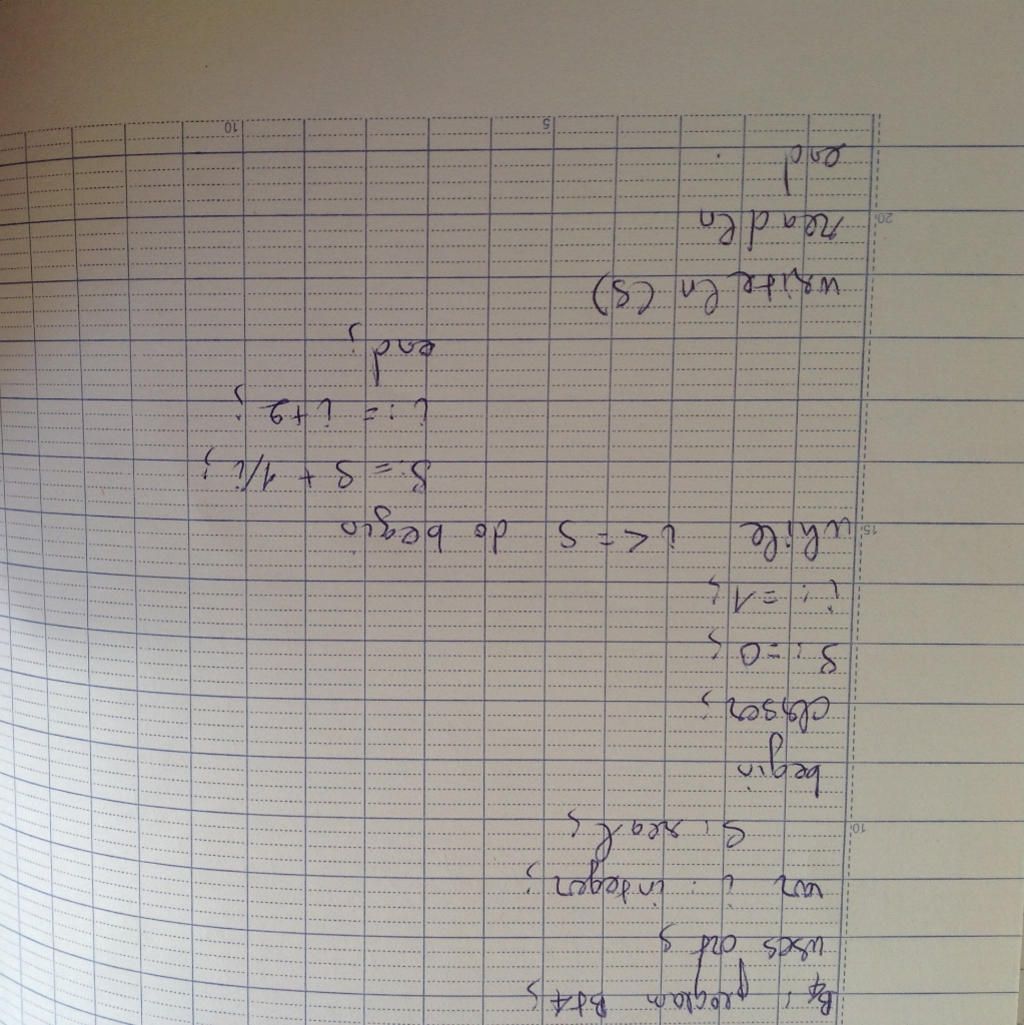 B4: program Bt4;
uses crt;
var i: integer;
S: real;
10
begin
clrscr;
S:=0;
i:=1;
while i<=5 do begin
15
S:=S + 1/i;
i:=i+2;
end;
writeln(S)
readln
20
end.
5 10